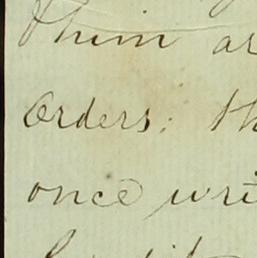 them
Orders; th
once wri